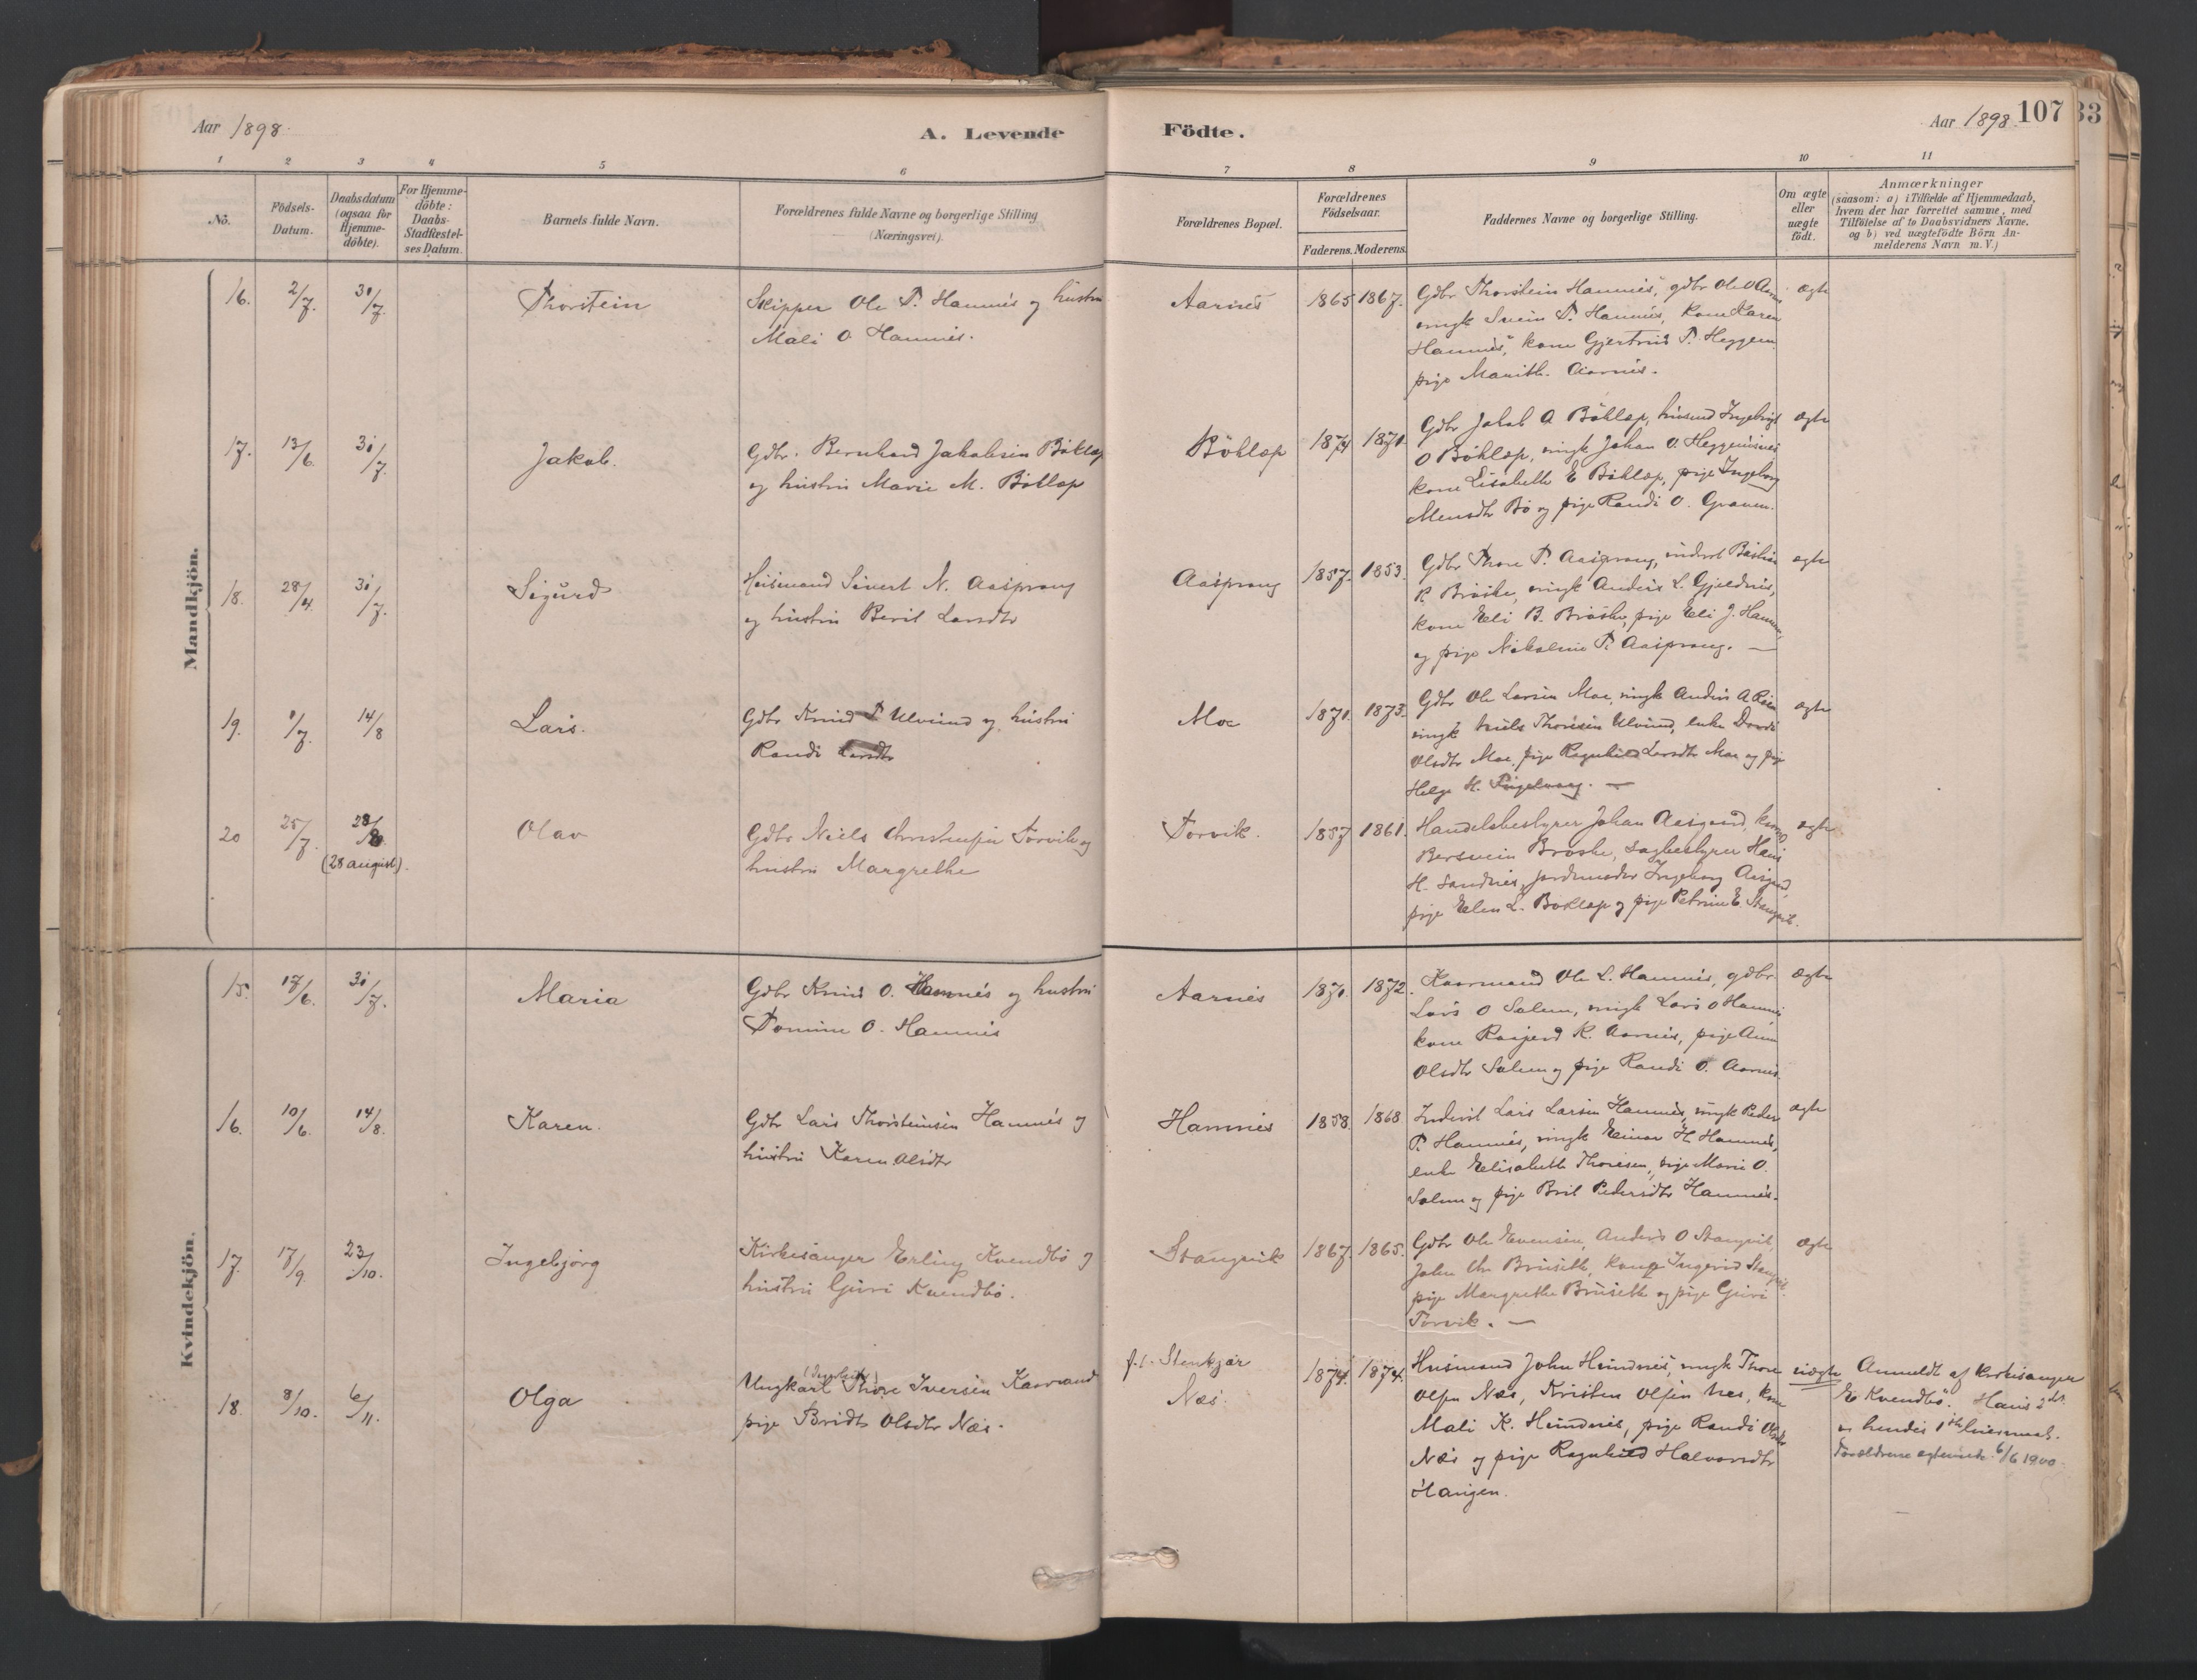 Aar 1898.
A. Levende
Födte.
Aar 1898.
107
33
1
2
3
4
5
6
7
8
9
10
11
No.
Födsels-
Datum.
Daabsdatum
(ogsaa for
Hjemme-
döbte).
For Hjemme-
döbte:
Daabs-
Stadfæstel-
ses Datum.
Barnets fulde Navn.
Forældrenes fulde Navne og borgerlige Stilling
(Næringsvei).
Forældrenes Bopæl.
Forældrenes
Födselsaar.
Faderens.
Moderens.
Faddernes Navne og borgerlige Stilling.
Om ægte
eller
uægte
födt.
Anmærkninger
(saasom: a) i Tilfælde af Hjemmedaab,
hvem der har forrettet samme, med
Tilföielse af to Daabsvidners Navne.
og b) ved uægtefödte Börn An-
melderens Navn m. V.)
Mandkjön.
16.
2/7.
31/7.
Thorstein
Skipper Ole T. Hamnes og hustru
Mali O Hamnes.
Aarnes
1865
1867.
Gdbr Thorstein Hamnes, gdbr Ole O Aarnes
ungk Svein T. Hamnes, kone Karen
Hamnes, kone Gjertrud T. Heggem
pige Marith. Aarnes.
ægte
17.
13/6.
31/7.
Jakob.
Gdbr. Bernhard Jakobsen Böklep
og hustru Marie M. Böklep
Böklep
1874
1871.
Gdbr Jakob A Böklep, husmd Ingebrigt
O Böklep, ungk Johan O. Heggemsnes
kone Lisabeth E Böklep, pige Ingeborg
Monsdtr Bö og pige Randi O. Graven.
ægte
18.
28/4.
31/7.
Sigurd
Huismand Sivert N. Aasprang
og hustru Beret Larsdtr
Aasprang
1857.
1853.
Gdbr Thore P. Aasprang, inderst Bastian
R. Bröske, ungk Anders L. Gjeldnes,
kone Eli B. Bröske, pige Eli J. Hamnes,
og pige Nikoline P. Aasprang. —
ægte
19.
1/7.
14/8
Lars.
Gdbr Knud T Ulvund og hustru
Randi Larsdtr
Moe
1871.
1873.
Gdbr Ole Larsen Moe, ungk Anders A
ungk Niels Thoresen Ulvund, enke Dordi
Olsdtr Moe, pige Ragnhild Larsdtr Moe og pige
Helge K. Fugelvaag. —
ægte
20
25/7.
28/8.
(28 august).
Olav
Gdbr Niels Christensen Torvik og
hustru Margrethe
Torvik.
1857
1861.
Handelsbestyrer Johan Aasgaard, kone
Bersvein Bröske, sagbestyrer Hans
H. Sandnes, jordmoder Ingeborg Aasgaard,
pige Elen L. Boklep og pige Petrine E. Stangvik.
ægte
Kvindekjön.
15.
17/6.
31/7.
Maria
Gdbr Knud O. Hamnes og hustru
Tomine O. Hamnes
Aarnes
1871.
1872.
Kaarmand Ole L. Hamnes, gdbr
Lars O Solem, ungk Lars O Hamnes
kone Ragjerd K. Aarnes, pige Anne
Olsdtr Solem og pige Randi O. Aarnes.
ægte
16.
10/6.
14/8.
Karen.
Gdbr Lars Thorsteinsen Hamnes og
hustru Karen Olsdtr
Hamnes
1858.
1868
Inderst Lars Larsen Hamnes, ungk Peder
P. Hamnes, ungk Einar H. Hamnes,
enke Elisabeth Thoresen, pige Marie O.
Solem og pige Brit Pedersdtr Hamnes.
ægte
17.
17/9.
23/10.
Ingebjörg
Kirkesanger Erling Kvendbö og
hustru Guri Kvendbö.
Stangvik
1867.
1865.
Gdbr Ole Evensen, Anders O Stangvik,
John Chr Brüseth, kone Ingerid Stangvik,
pige Margrethe Brüseth og pige Guri
Torvik. —
ægte
18.
8/10.
6/11.
Olga
Ungkarl Thore Iversen Kaarvand
pige Bridt Olsdtr Næs.
f. t. Stenkjær
Næs.
1874.
1874.
Husmand John Heindnes, ungk Thore
Olsen Næs, Kristen Olsen Næs, kone
Mali K. Heindnes, pige Randi Olsdtr
Næs og pige Ragnhild Halvorsdtr
Hangen.
uægte
Anmeldt af kirkesanger
E Kvendbö. Hans 2det
og hendes 1ste leiermaal.
Forældrene ægteviede 6/6 1900.